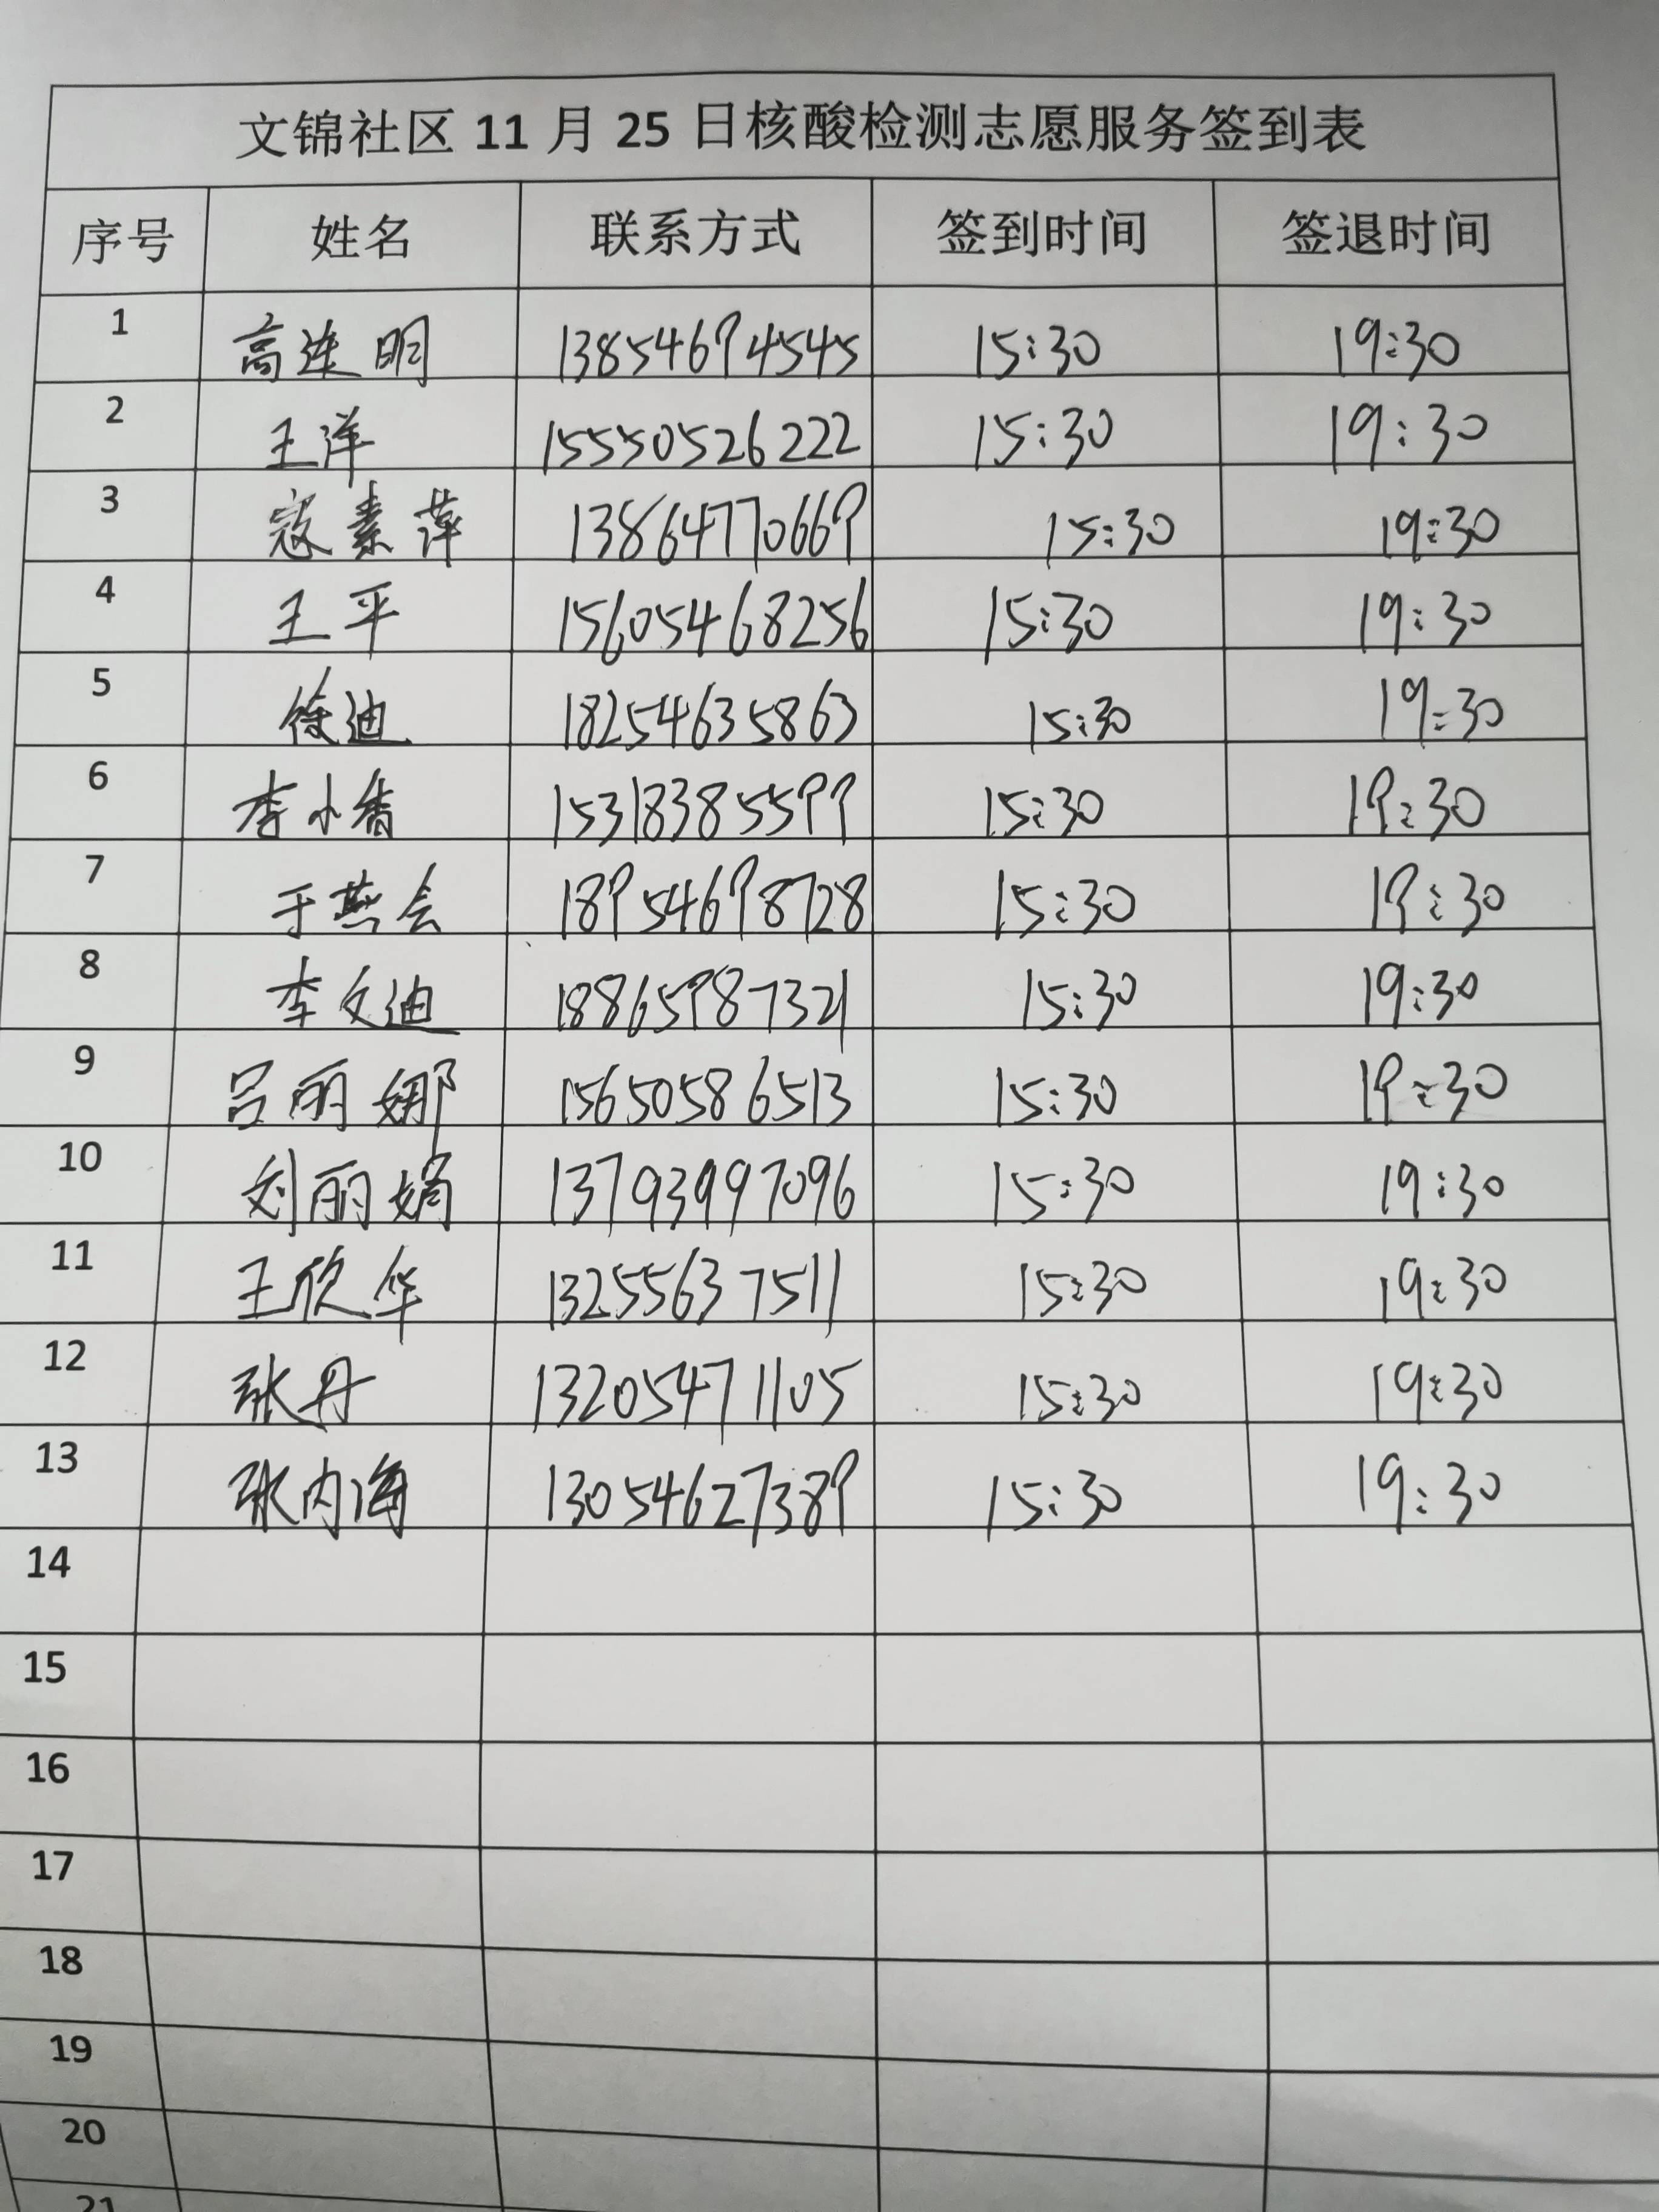 文锦社区 11 月 25 日核酸检测志愿服务签到表
序号 姓名 联系方式 签到时间 签退时间
1 高连明 13854694545 15:30 19:30
2 王洋 15550526222 15:30 19:30
3 寇素萍 13864770669 15:30 19:30
4 王平 15605468256 15:30 19:30
5 徐迪 18254635863 15:30 19:30
6 李小香 15318385599 15:30 19:30
7 于燕会 18954698728 15:30 19:30
8 李文迪 18865987321 15:30 19:30
9 吕丽娜 15650586513 15:30 19:30
10 刘丽娟 13793997096 15:30 19:30
11 王欣华 13255637511 15:30 19:30
12 张丹 13205471105 15:30 19:30
13 张内海 13054627389 15:30 19:30
14
15
16
17
18
19
20
21